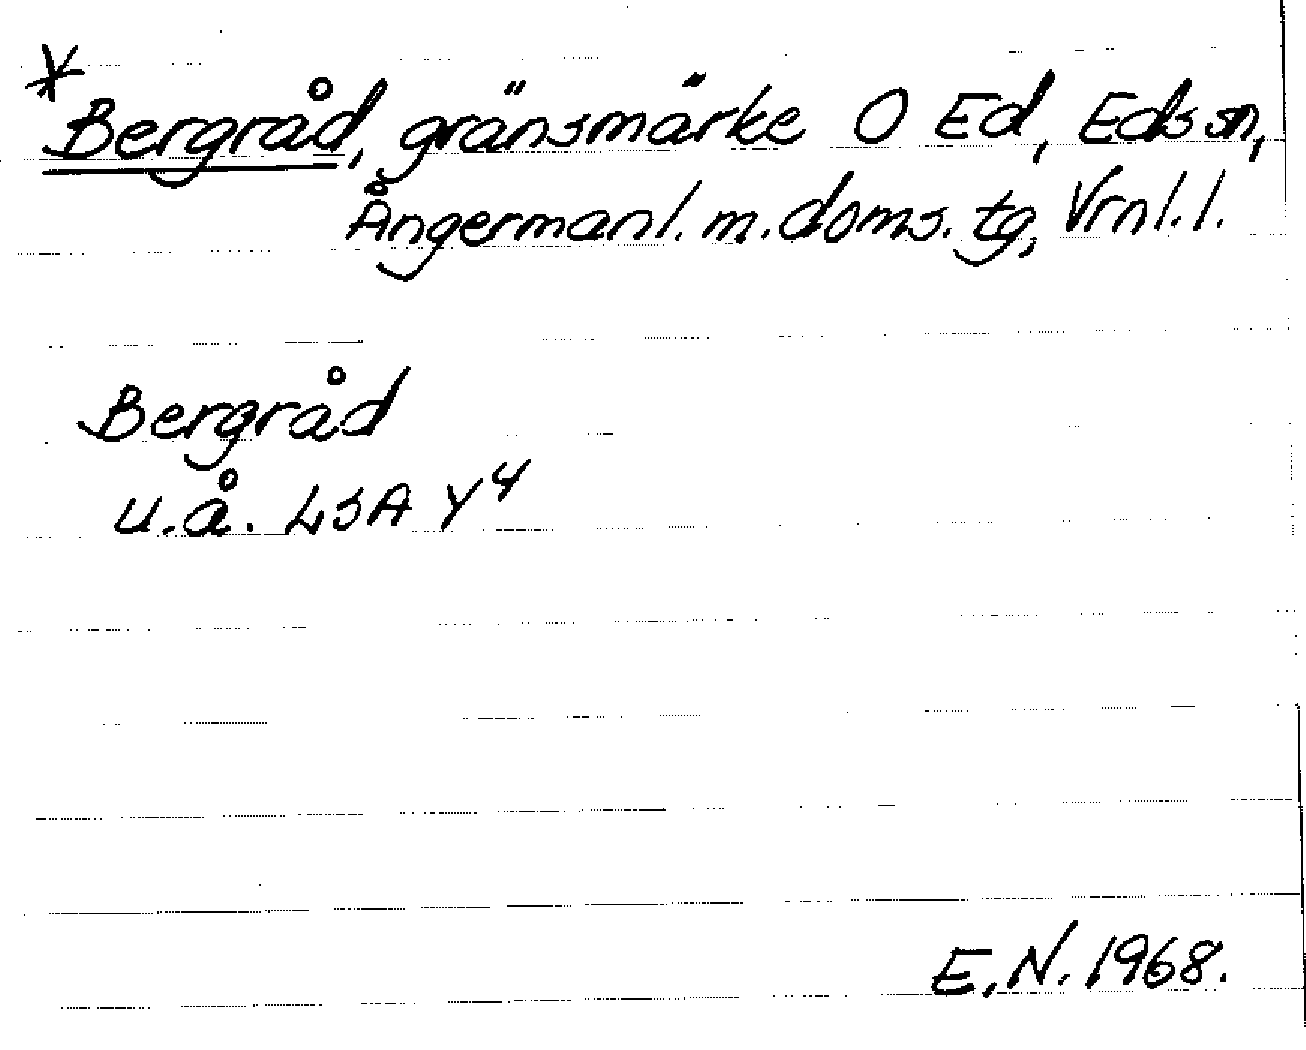 * Bergråd, gränsmärke O Ed, Eds sn,
Ångermanl. m. doms. tg, Vrnl. l.
Bergråd
u.å. LSA Y4
E.N. 1968.